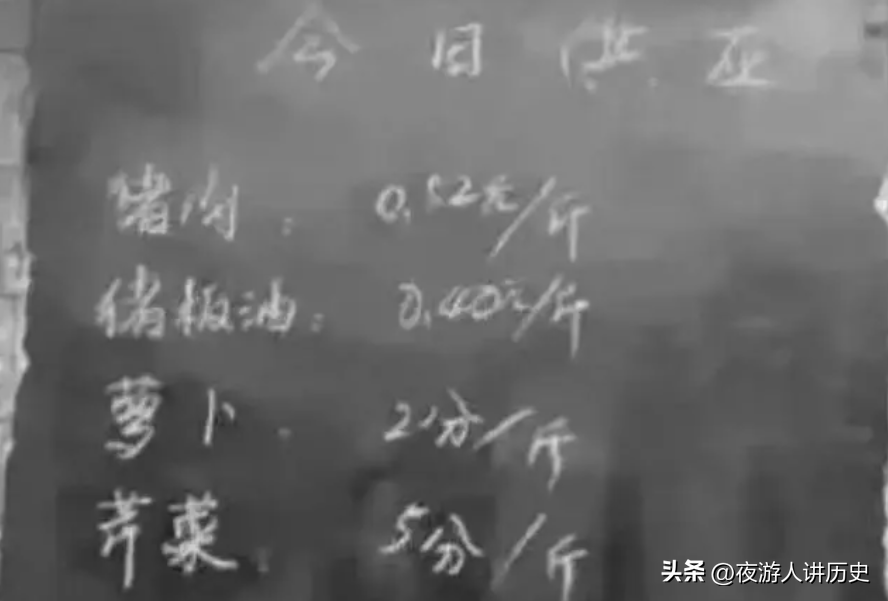 今日供应
猪肉：0.52元/斤
猪板油：0.40元/斤
萝卜：2分/斤
芹菜：5分/斤
头条 @夜游人讲历史